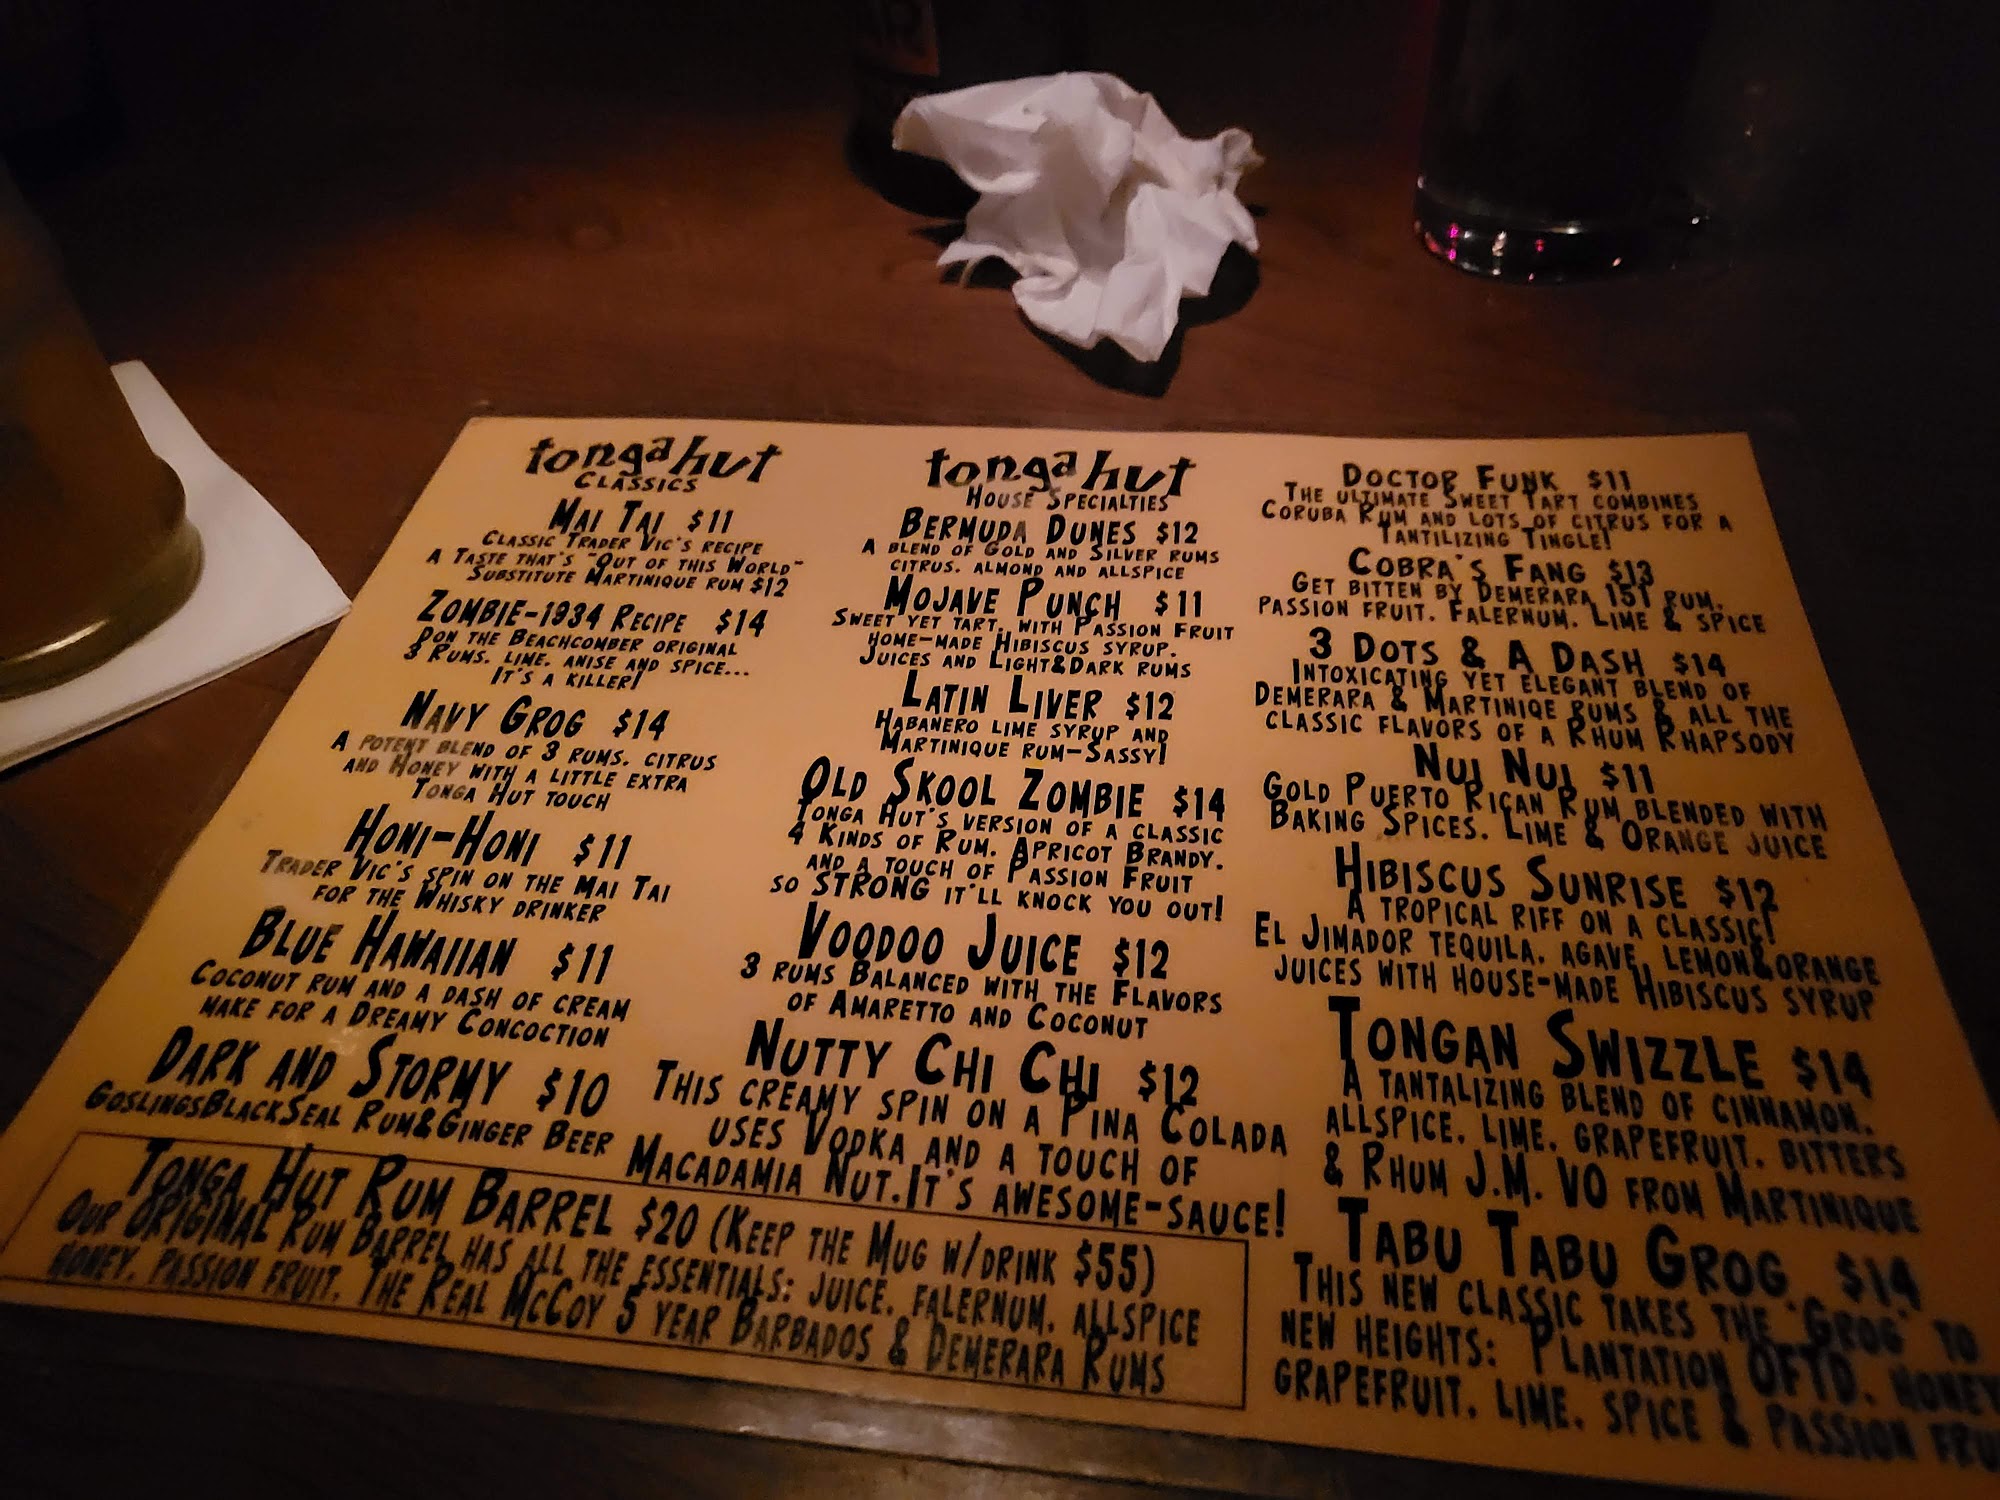 tonga hut
CLASSICS
MAI TAI $11
CLASSIC TRADER VIC'S RECIPE
A TASTE THAT'S "OUT OF THIS WORLD"
SUBSTITUTE MARTINIQUE RUM $12
ZOMBIE-1934 RECIPE $14
DON THE BEACHCOMBER ORIGINAL
3 RUMS, LIME, ANISE AND SPICE...
IT'S A KILLER!
NAVY GROG $14
A POTENT BLEND OF 3 RUMS, CITRUS
AND HONEY WITH A LITTLE EXTRA
TONGA HUT TOUCH
HONI-HONI $11
TRADER VIC'S SPIN ON THE MAI TAI
FOR THE WHISKY DRINKER
BLUE HAWAIIAN $11
COCONUT RUM AND A DASH OF CREAM
MAKE FOR A DREAMY CONCOCTION
DARK AND STORMY $10
GOSLINGSBLACKSEAL RUM&GINGER BEER
TONGA HUT RUM BARREL $20 (KEEP THE MUG W/DRINK $55)
OUR ORIGINAL RUM BARREL HAS ALL THE ESSENTIALS: JUICE, FALERNUM, ALLSPICE
HONEY, PASSION FRUIT, THE REAL MCCOY 5 YEAR BARBADOS & DEMERARA RUMS
tonga hut
HOUSE SPECIALTIES
BERMUDA DUNES $12
A BLEND OF GOLD AND SILVER RUMS
CITRUS, ALMOND AND ALLSPICE
MOJAVE PUNCH $11
SWEET YET TART, WITH PASSION FRUIT
HOME-MADE HIBISCUS SYRUP,
JUICES AND LIGHT&DARK RUMS
LATIN LIVER $12
HABANERO LIME SYRUP AND
MARTINIQUE RUM-SASSY!
OLD SKOOL ZOMBIE $14
TONGA HUT'S VERSION OF A CLASSIC
4 KINDS OF RUM, APRICOT BRANDY,
AND A TOUCH OF PASSION FRUIT
SO STRONG IT'LL KNOCK YOU OUT!
VOODOO JUICE $12
3 RUMS BALANCED WITH THE FLAVORS
OF AMARETTO AND COCONUT
NUTTY CHI CHI $12
THIS CREAMY SPIN ON A PINA COLADA
USES VODKA AND A TOUCH OF
MACADAMIA NUT.IT'S AWESOME-SAUCE!
DOCTOR FUNK $11
THE ULTIMATE SWEET TART COMBINES
CORUBA RUM AND LOTS OF CITRUS FOR A
TANTILIZING TINGLE!
COBRA'S FANG $13
GET BITTEN BY DEMERARA 151 RUM,
PASSION FRUIT, FALERNUM, LIME & SPICE
3 DOTS & A DASH $14
INTOXICATING YET ELEGANT BLEND OF
DEMERARA & MARTINIQE RUMS & ALL THE
CLASSIC FLAVORS OF A RHUM RHAPSODY
NUI NUI $11
GOLD PUERTO RICAN RUM BLENDED WITH
BAKING SPICES, LIME & ORANGE JUICE
HIBISCUS SUNRISE $12
A TROPICAL RIFF ON A CLASSIC!
EL JIMADOR TEQUILA, AGAVE, LEMON&ORANGE
JUICES WITH HOUSE-MADE HIBISCUS SYRUP
TONGAN SWIZZLE $14
A TANTALIZING BLEND OF CINNAMON,
ALLSPICE, LIME, GRAPEFRUIT, BITTERS
& RHUM J.M. VO FROM MARTINIQUE
TABU TABU GROG $14
THIS NEW CLASSIC TAKES THE "GROG" TO
NEW HEIGHTS: PLANTATION OFTD, HONEY
GRAPEFRUIT, LIME, SPICE & PASSION FRU